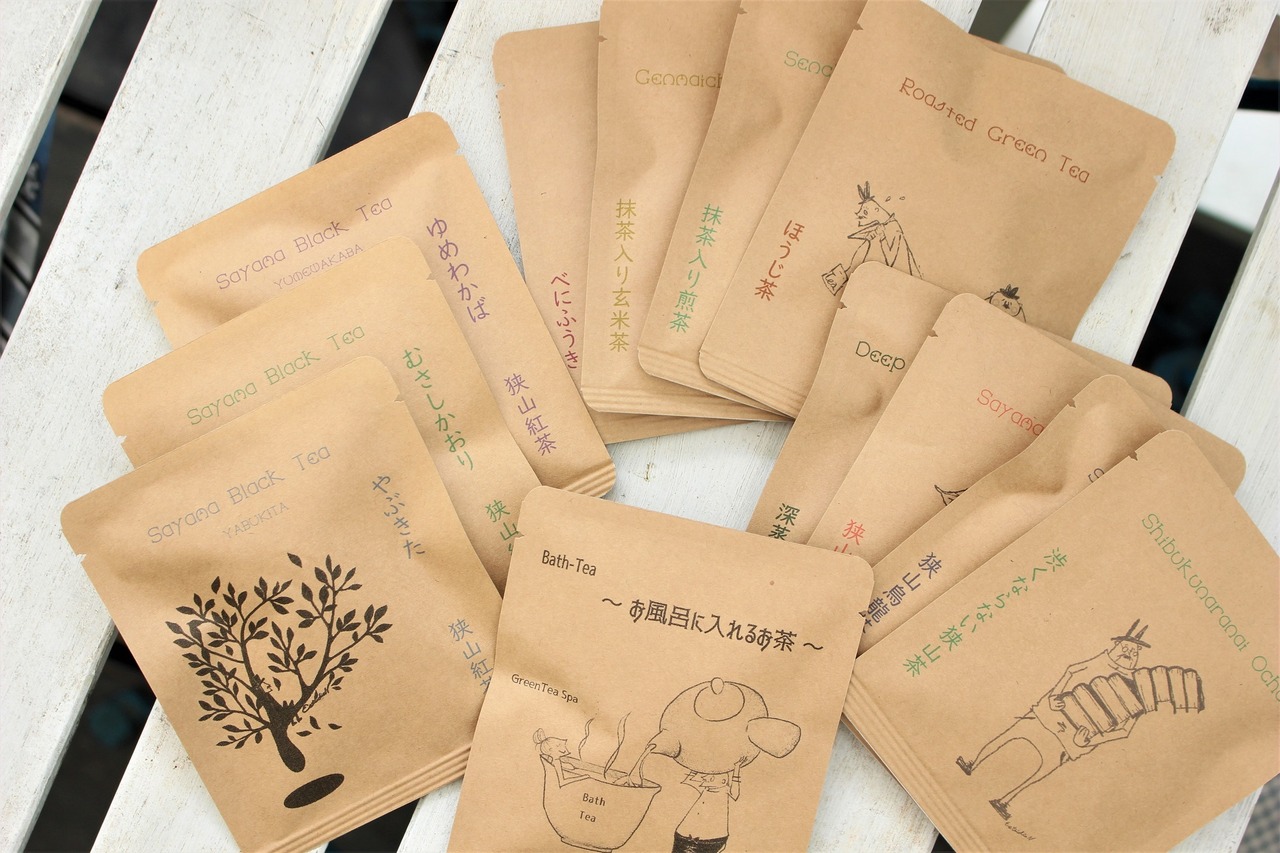 Sayama Black Tea
YUMEWAKABA
ゆめわかば
狭山紅茶
Sayama Black Tea
むさしかおり
狭山
Sayama Black Tea
YABUKITA
やぶきた
狭山紅茶
べにふうき
Genmaich
抹茶入り玄米茶
Senc
抹茶入り煎茶
Roasted Green Tea
ほうじ茶
Deep
深蒸
Sayama
狭山
狭山烏龍
Shibukunaranai Och
渋くならない狭山茶
Bath-Tea
～お風呂に入れるお茶～
GreenTea Spa
Bath
Tea